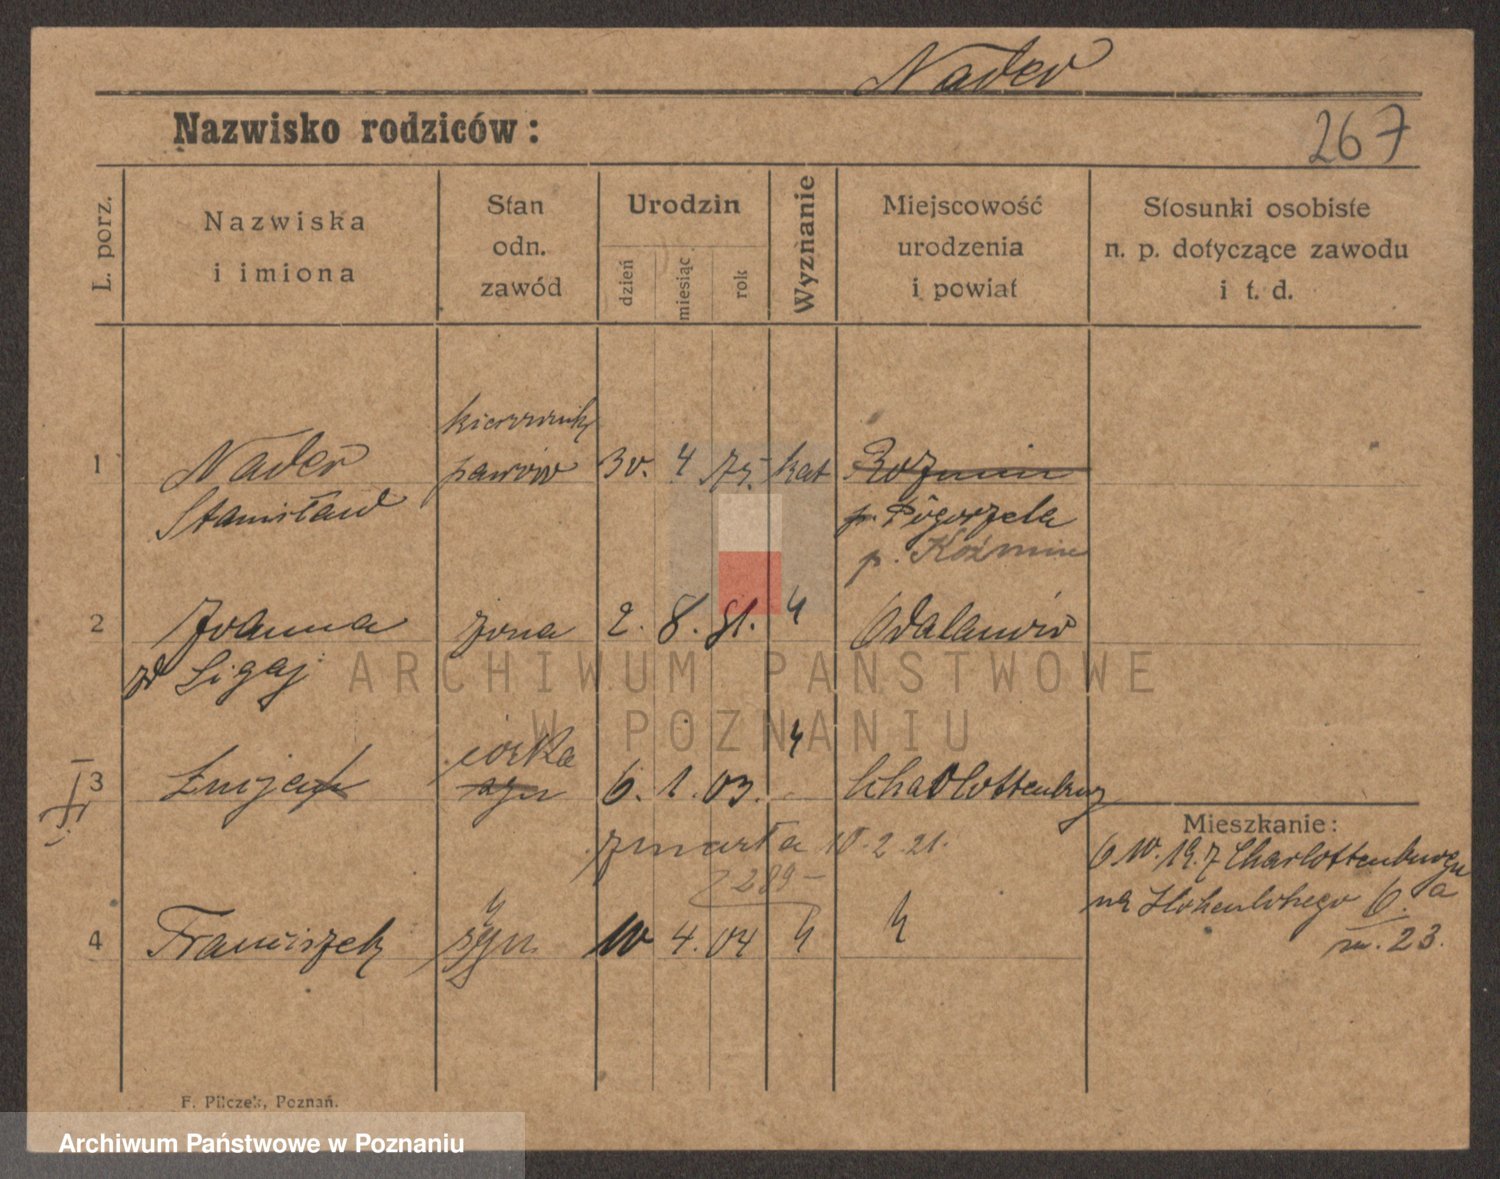 Nader
Nazwisko rodziców:
267
L. porz.
Nazwiska
i imiona
Stan
odn.
zawód
Urodzin
dzień
miesiąc
rok
Wyznanie
Miejscowość
urodzenia
i powiat
Stosunki osobiste
n. p. dotyczące zawodu
i t. d.
kierownik
1 Nader 30. 4 75. kat
Stanisław p. Pogorzela
p. Koźmin
2 Joanna żona 2. 8. 81. " Odalanów
zd Ligaj
córka "
3 Łucja 6. 1. 03. Charlottenburg
zmarła 10. 2. 21.
289-
4 Franciszek syn 10 4. 04 " "
Mieszkanie:
6 10. 19. z Charlottenburga
na Hohenlohego 6. a
m. 23.
F. Pilczek, Poznań.
ARCHIWUM PAŃSTWOWE
W POZNANIU
Archiwum Państwowe w Poznaniu